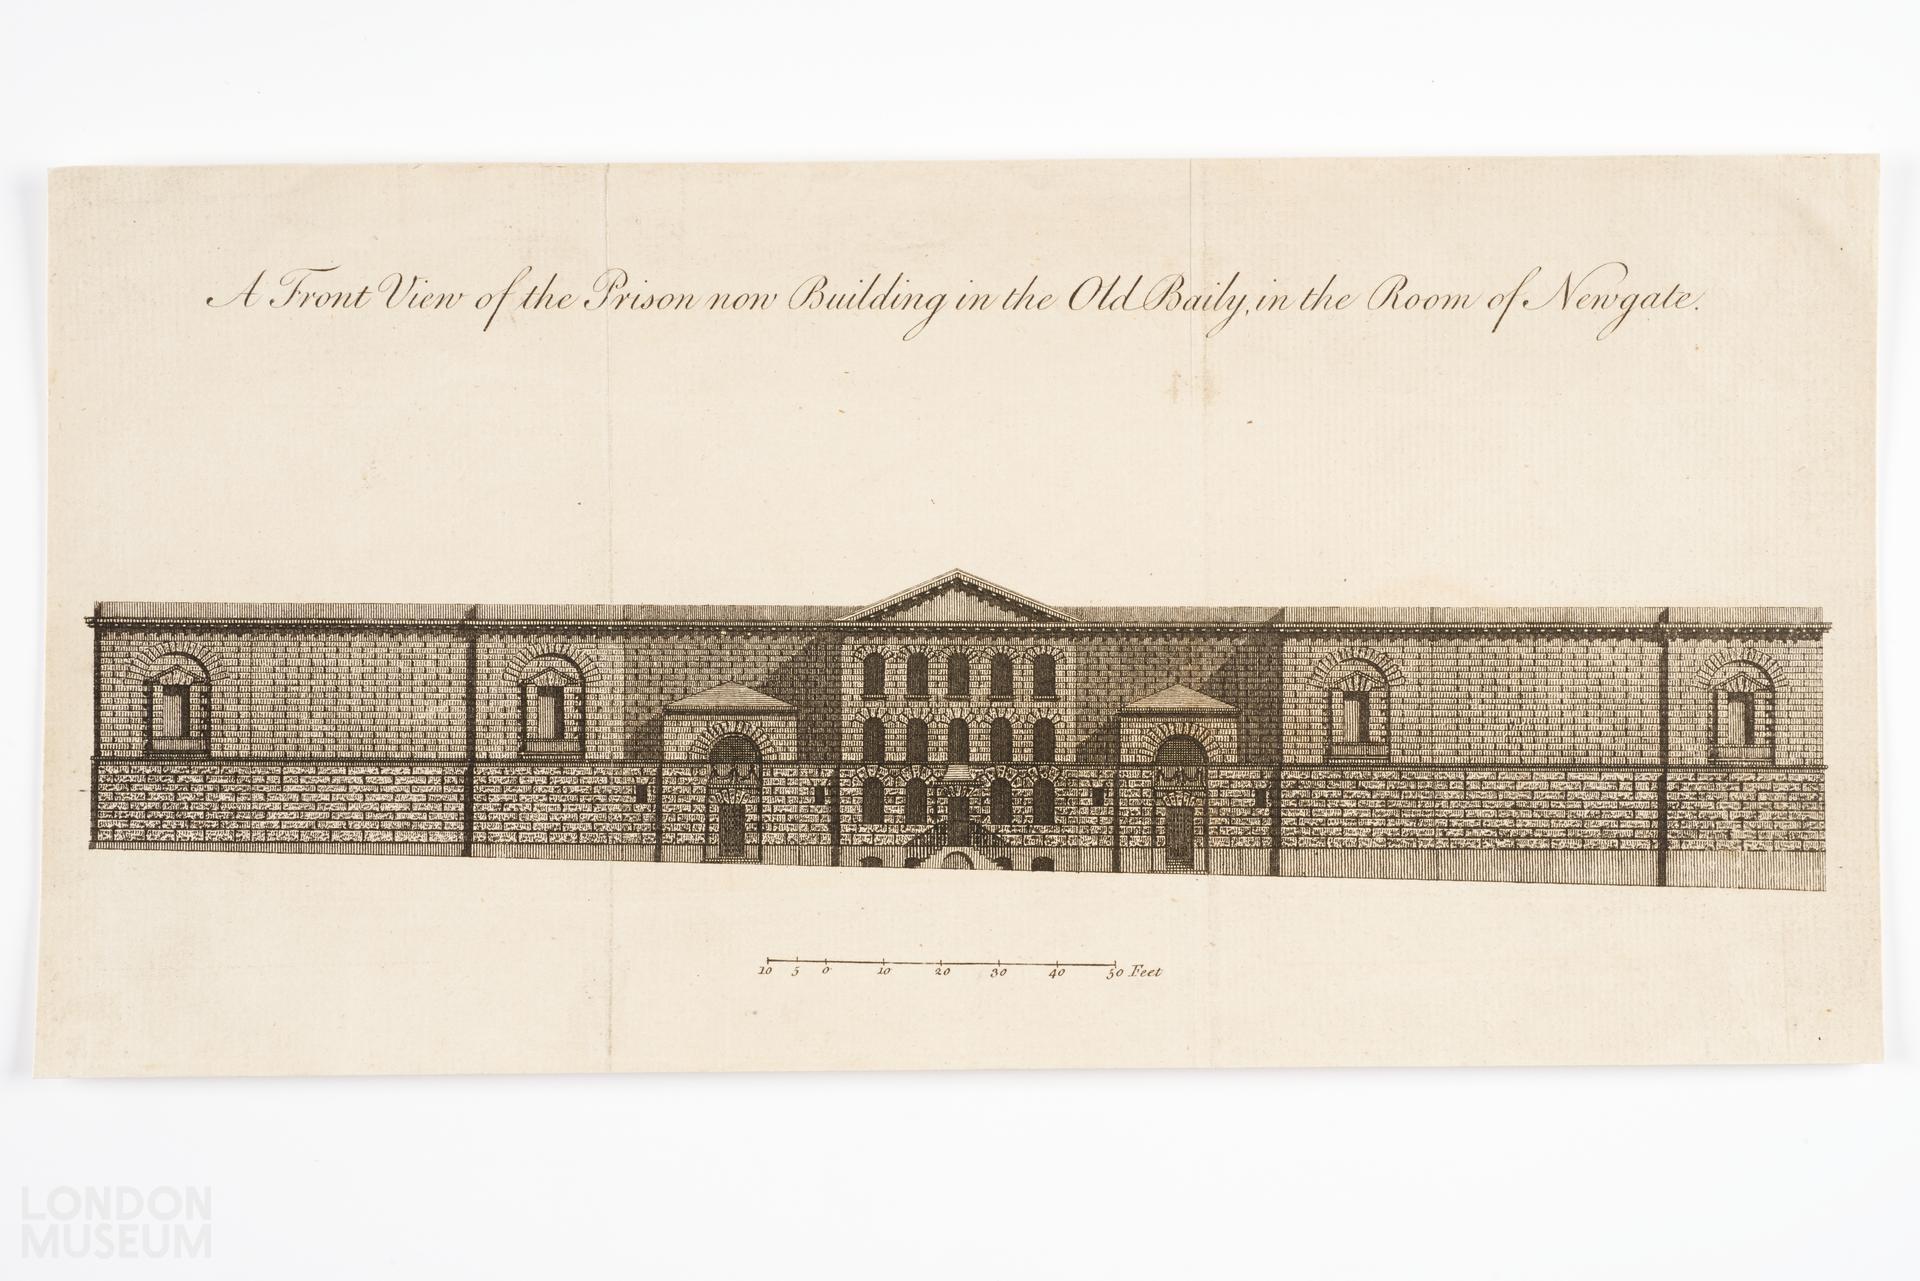 A Front View of the Prison now Building in the Old Baily, in the Room of Newgate.
10 5 0 10 20 30 40 50 Feet
LONDON
MUSEUM